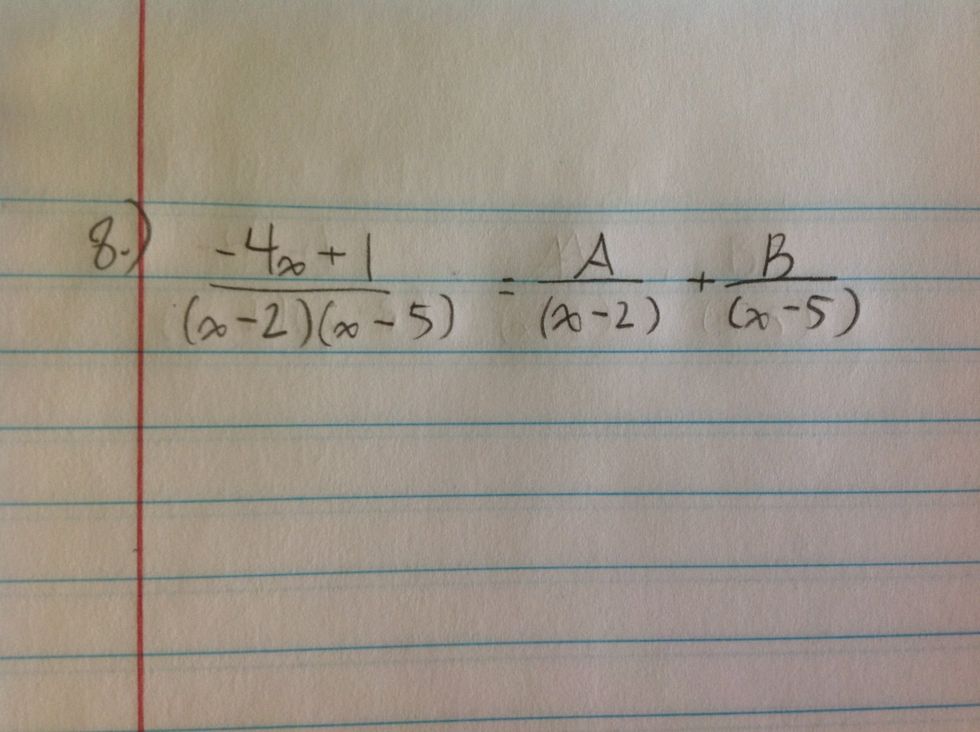 8.) -4x + 1 / (x - 2)(x - 5) = A / (x - 2) + B / (x - 5)